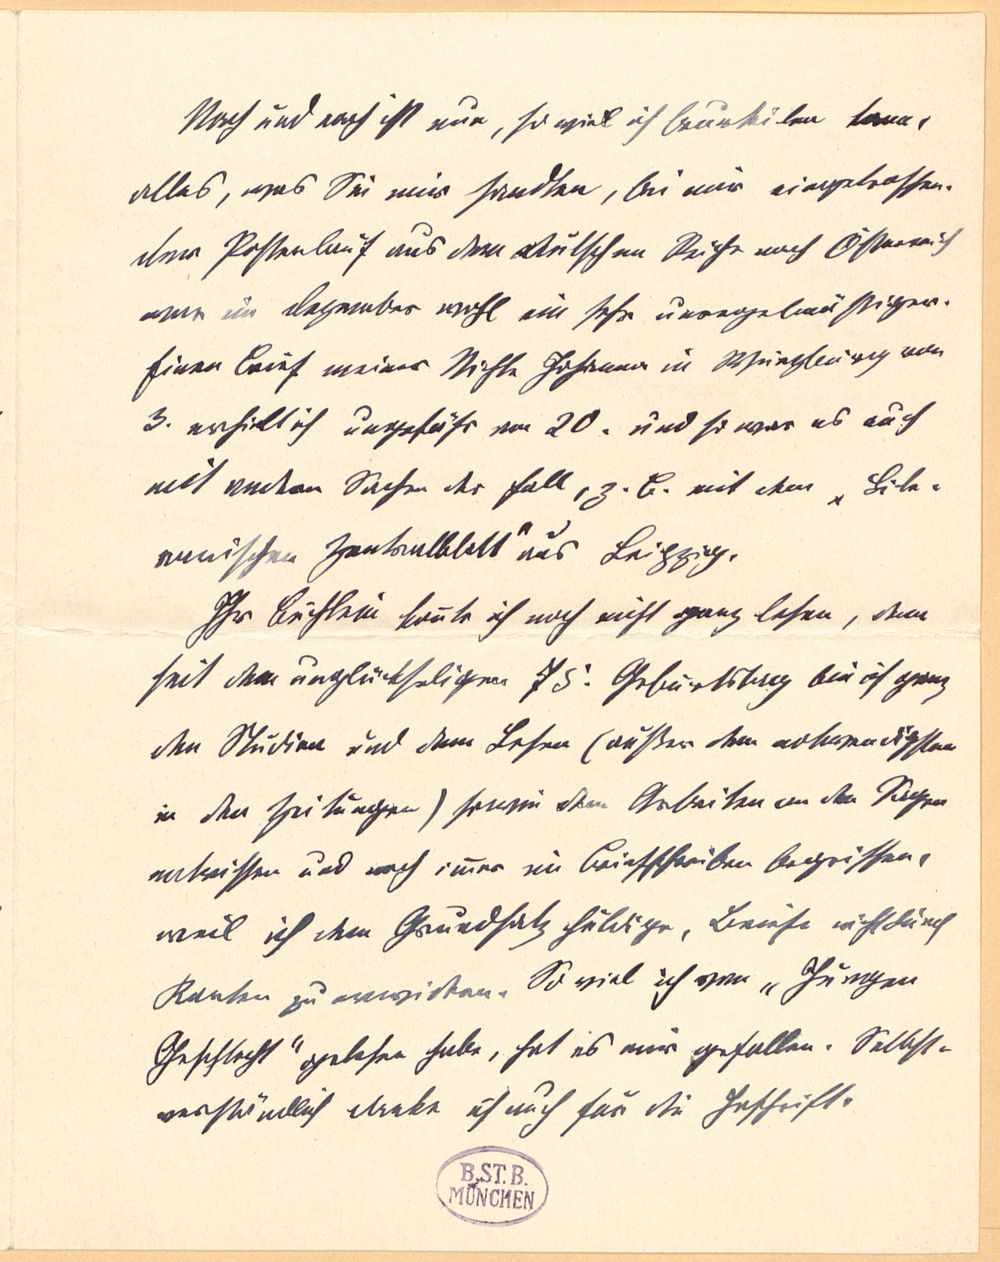 Nach und nach ist nun, so viel ich beurteilen kann,
alles, was Sie mir sandten, bei mir eingetroffen.
Der Postenlauf aus dem deutschen Reiche nach Österreich
war im Dezember wohl ein sehr unregelmäßiger.
Einen Brief meiner Nichte Johanna in Würzburg von
3. erhielt ich ungefähr am 20. und so war es auch
mit andern Sachen der Fall, z. B. mit dem „Lite-
rarischen Zentralblatt" aus Leipzig.
Ihr Büchlein konnte ich noch nicht ganz lesen, denn
seit dem unglückseligen 75. Geburtstag bin ich ganz
den Studien und dem Lesen (außer dem notwendigsten
in den Zeitungen) sowie dem Arbeiten an den Sagen
entrissen und noch immer im Briefschreiben begriffen,
weil ich dem Grundsatz huldige, Briefe nicht durch
Karten zu erwidern. So viel ich vom „Jungen
Geschlecht" gelesen habe, hat es mir gefallen. Selbst-
verständlich danke ich auch für die Inschrift.
B. ST. B.
MÜNCHEN